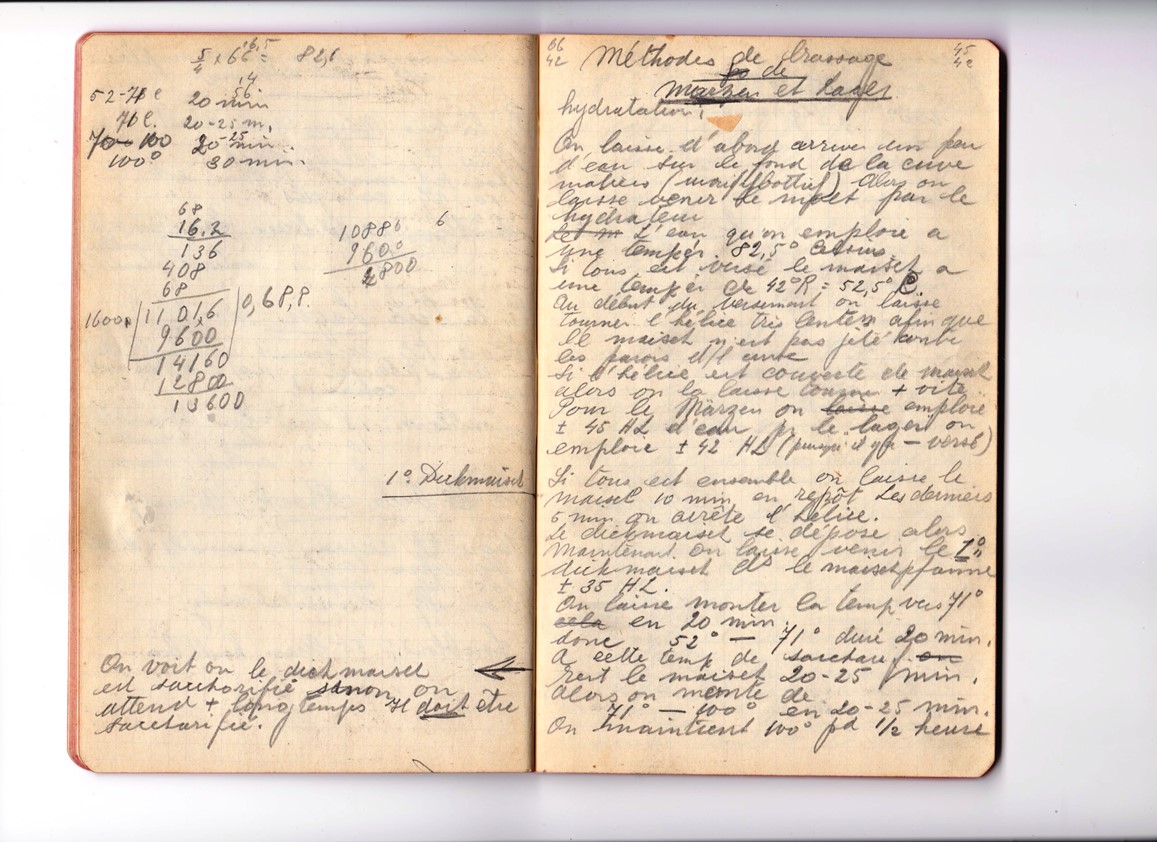 5/4 x 66 = 82,5
16,5
14
56
52-71 c 20 min
71 c. 20-25 m.
70-100 20-25 min.
100° 30 min.
68
16,2
136
408
68
1600 11016 0,688.
9600
14160
12800
13600
10880 6
9600
2800
1° Dickmaisch
On voit ou le dickmaisch
est saccharifié sinon on
attend + longtemps Il doit être
saccharifié.
66
42
45
42
Méthodes de brassage
de
Märzen et Lager
hydratation:
On laisse d'abord arriver un peu
d'eau sur le fond de la cuve
matière Alors on
laisse venir le par le
hydrateur
L'eau qu'on emploie a
une tempér. 82,5° Celsius
Si tous est versé le maisch a
une tempér de 42°R = 52,5° C.
Au début du versement on laisse
tourner l'hélice très lentem afin que
le maisch n'est pas jeté contre
les parois d/l cuve
Si l'hélice est couverte de maisch
alors on la laisse tourner + vite
Pour le Märzen on laisse emploie
± 45 HL d'eau pr le lager on
emploie ± 42 HL (puisqu'il y a — versé)
Si tous est ensemble on laisse le
maisch 10 min en repôt Les derniers
5 min on arrête l'hélice.
Le dickmaisch se dépose alors
Maintenant on laisse venir le 1°
dickmaisch ds le maischpfanne
± 35 HL.
On laisse monter la temp vers 71°
cela en 20 min
donc 52° — 71° dure 20 min.
A cette temp de sacchari on
rest le maisch 20-25 min.
Alors on monte de
71° — 100° en 20-25 min.
On maintient 100° pd 1/2 heure